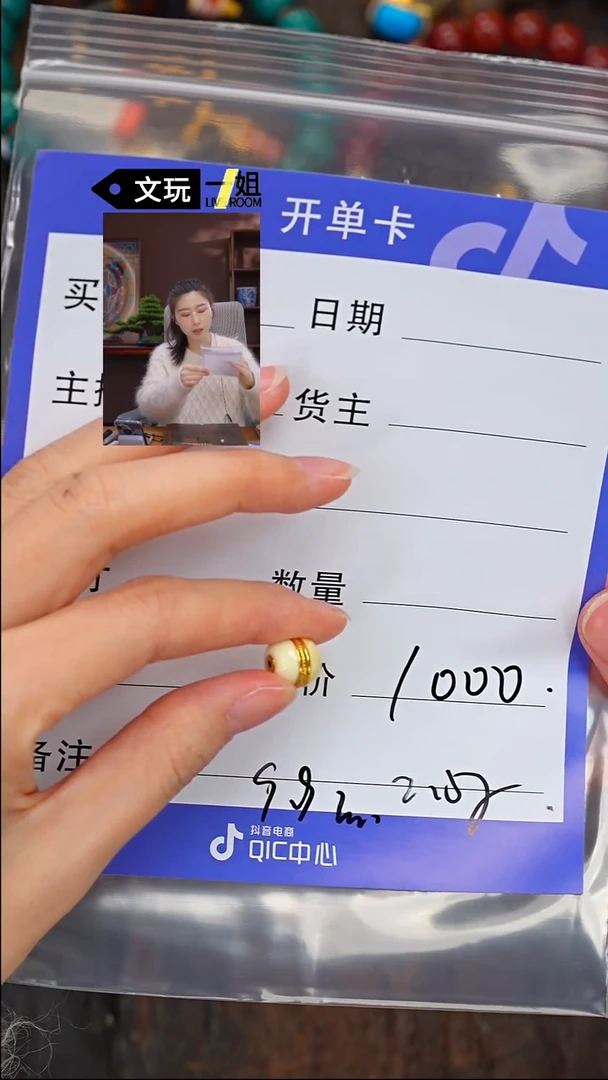 文玩一姐
LIVE ROOM
开单卡
买
日期
主播
货主
数量
价 1000.
备注
抖音电商
QIC中心